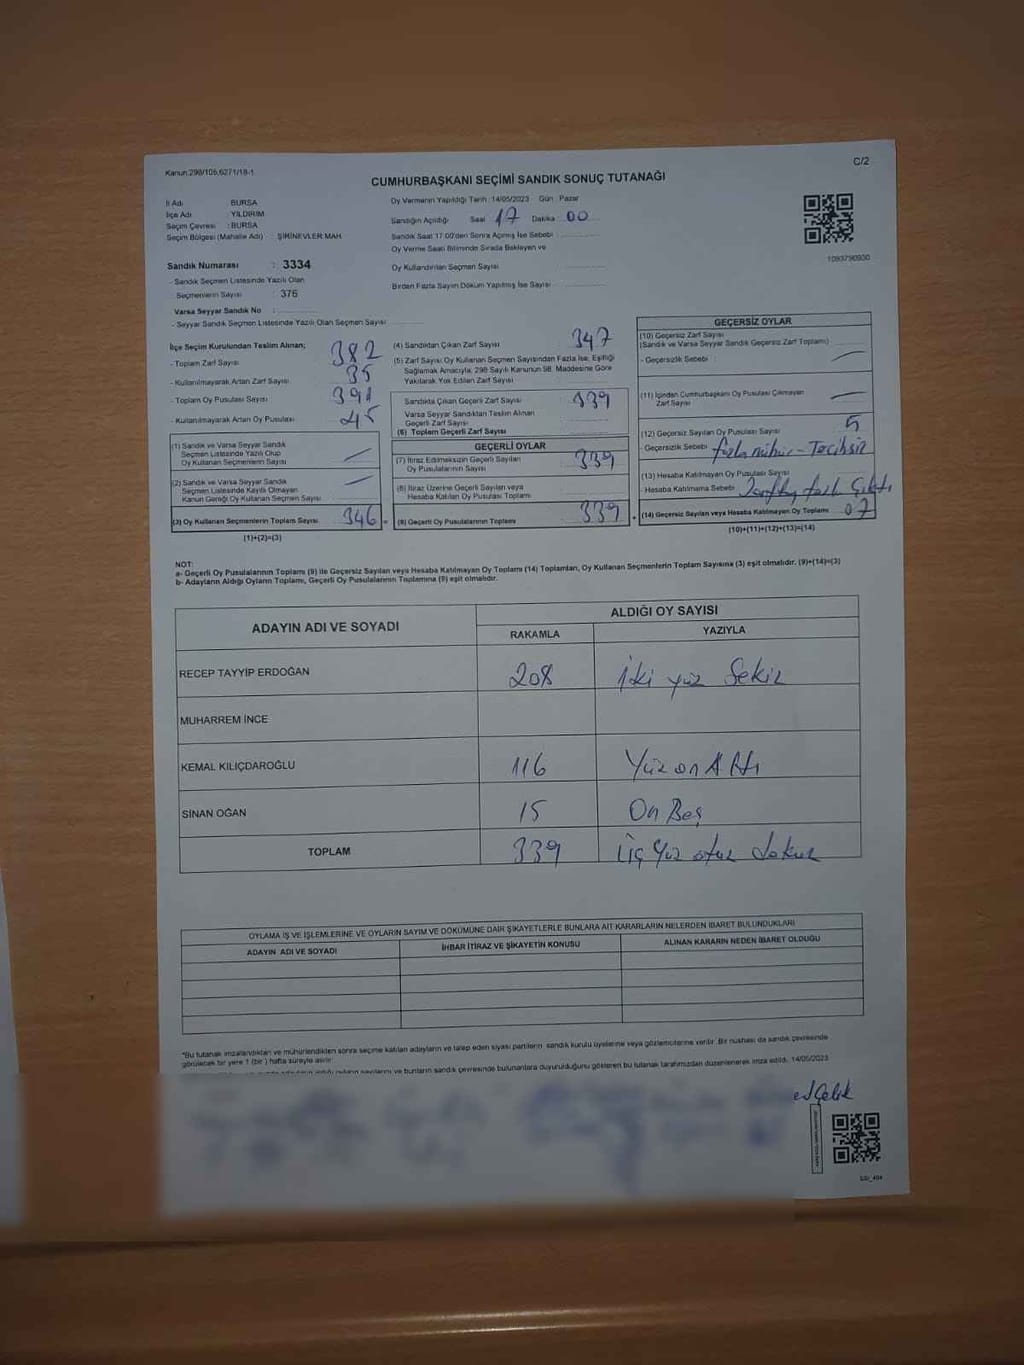 Kanun 298/105,6271/18-1
C/2
CUMHURBAŞKANI SEÇİMİ SANDIK SONUÇ TUTANAĞI
İl Adı : BURSA
İlçe Adı : YILDIRIM
Seçim Çevresi : BURSA
Seçim Bölgesi (Mahalle Adı) : ŞİRİNEVLER MAH
Sandık Numarası : 3334
- Sandık Seçmen Listesinde Yazılı Olan
Seçmenlerin Sayısı : 376
Varsa Seyyar Sandık No :
- Seyyar Sandık Seçmen Listesinde Yazılı Olan Seçmen Sayısı
Oy Vermenin Yapıldığı Tarih :14/05/2023 Gün : Pazar
Sandığın Açıldığı Saat 17 Dakika 00
Sandık Saat 17:00'den Sonra Açılmış İse Sebebi
Oy Verme Saati Bitiminde Sırada Bekleyen ve
Oy Kullandırılan Seçmen Sayısı
Birden Fazla Sayım Döküm Yapılmış İse Sayısı
1093790930
İlçe Seçim Kurulundan Teslim Alınan;
- Toplam Zarf Sayısı 382
- Kullanılmayarak Artan Zarf Sayısı 35
- Toplam Oy Pusulası Sayısı 391
- Kullanılmayarak Artan Oy Pusulası 45
(1) Sandık ve Varsa Seyyar Sandık
Seçmen Listesinde Yazılı Olup
Oy Kullanan Seçmenlerin Sayısı
(2) Sandık ve Varsa Seyyar Sandık
Seçmen Listesinde Kayıtlı Olmayan
Kanun Gereği Oy Kullanan Seçmen Sayısı
(3) Oy Kullanan Seçmenlerin Toplam Sayısı 346
(1)+(2)=(3)
(4) Sandıktan Çıkan Zarf Sayısı 347
(5) Zarf Sayısı Oy Kullanan Seçmen Sayısından Fazla İse, Eşitliği
Sağlamak Amacıyla; 298 Sayılı Kanunun 98. Maddesine Göre
Yakılarak Yok Edilen Zarf Sayısı
Sandıkta Çıkan Geçerli Zarf Sayısı 339
Varsa Seyyar Sandıktan Teslim Alınan
Geçerli Zarf Sayısı
(6) Toplam Geçerli Zarf Sayısı
GEÇERLİ OYLAR
(7) İtiraz Edilmeksizin Geçerli Sayılan
Oy Pusulalarının Sayısı 339
(8) İtiraz Üzerine Geçerli Sayılan veya
Hesaba Katılan Oy Pusulası Toplamı
(9) Geçerli Oy Pusulalarının Toplamı 339
GEÇERSİZ OYLAR
(10) Geçersiz Zarf Sayısı
(Sandık ve Varsa Seyyar Sandık Geçersiz Zarf Toplamı)
- Geçersizlik Sebebi
(11) İçinden Cumhurbaşkanı Oy Pusulası Çıkmayan
Zarf Sayısı
(12) Geçersiz Sayılan Oy Pusulası Sayısı 5
- Geçersizlik Sebebi fazla mühür - Tercihsiz
(13) Hesaba Katılmayan Oy Pusulası Sayısı
- Hesaba Katılmama Sebebi fazla Çıktı
(14) Geçersiz Sayılan veya Hesaba Katılmayan Oy Toplamı 07
(10)+(11)+(12)+(13)=(14)
NOT:
a- Geçerli Oy Pusulalarının Toplamı (9) ile Geçersiz Sayılan veya Hesaba Katılmayan Oy Toplamı (14) Toplamları, Oy Kullanan Seçmenlerin Toplam Sayısına (3) eşit olmalıdır. (9)+(14)=(3)
b- Adayların Aldığı Oyların Toplamı, Geçerli Oy Pusulalarının Toplamına (9) eşit olmalıdır.
ADAYIN ADI VE SOYADI
ALDIĞI OY SAYISI
RAKAMLA YAZIYLA
RECEP TAYYİP ERDOĞAN 208 İki yüz Sekiz
MUHARREM İNCE
KEMAL KILIÇDAROĞLU 116 Yüz on Altı
SİNAN OĞAN 15 On Beş
TOPLAM 339 Üç Yüz otuz dokuz
OYLAMA İŞ VE İŞLEMLERİNE VE OYLARIN SAYIM VE DÖKÜMÜNE DAİR ŞİKAYETLERLE BUNLARA AİT KARARLARIN NELERDEN İBARET BULUNDUKLARI
ADAYIN ADI VE SOYADI İHBAR İTİRAZ VE ŞİKAYETİN KONUSU ALINAN KARARIN NEDEN İBARET OLDUĞU
"Bu tutanak imzalandıktan ve mühürlendikten sonra seçime katılan adayların ve talep eden siyasi partilerin sandık kurulu üyelerine veya gözlemcilerine verilir. Bir nüshası da sandık çevresinde
görülecek bir yere 1 (bir) hafta süreyle asılır.
oyların sayılarını ve bunların sandık çevresinde bulunanlara duyurulduğunu gösteren bu tutanak tarafımızdan düzenlenerek imza edildi. 14/05/2023
ed Çelik